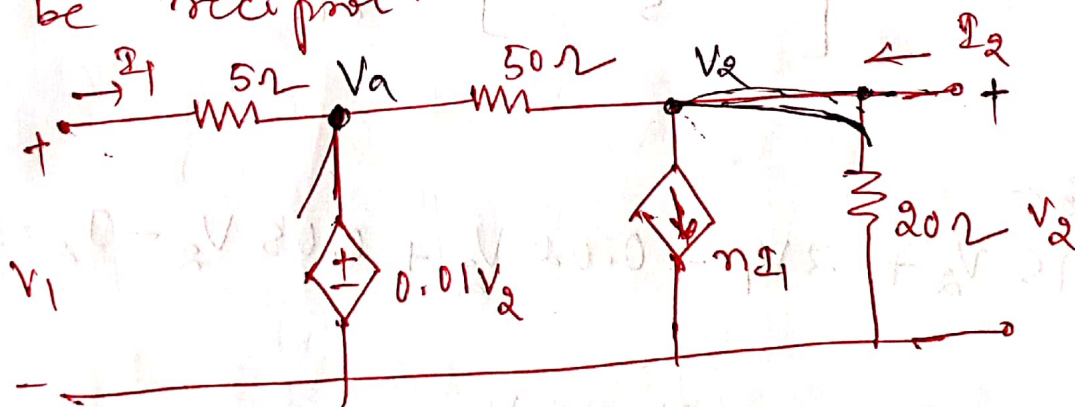 be recipro
I1 5Ω Va 50Ω V2 I2
+ +
V1 + - 0.01V2 nI1 20Ω V2
-